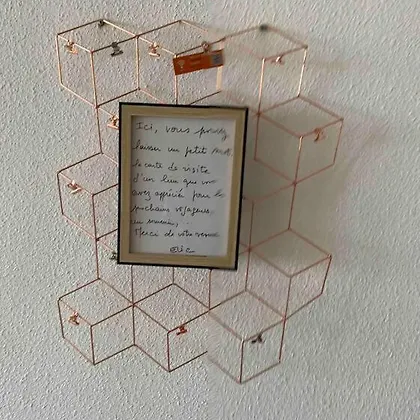 Ici, vous pouvez
laisser un petit mot,
la carte de visite
d'un lieu que vous
avez apprécié pour les
prochains voyageurs,
un souvenir,
Merci de votre venue